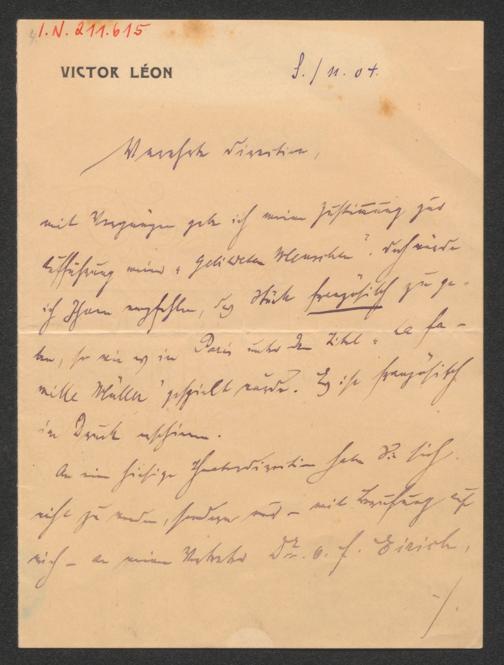 I.N. 211.615
VICTOR LÉON
8./11.04.
Verehrte Direction,
mit Vergnügen gebe ich meine Zustimmung zur
Aufführung meiner "Gebildeten Menschen". Doch würde
ich Ihnen empfehlen, das Stück französisch zu ge-
ben, so wie es in Paris unter dem Titel "La fa-
mille Müller" gespielt wurde. Es ist französisch
im Druck erschienen.
An eine hiesige Theaterdirection haben Sie sich
nicht zu wenden, sondern nur – mit Berufung auf
mich – an meinen Vertreter Dr. O. F. Eirich,
./.